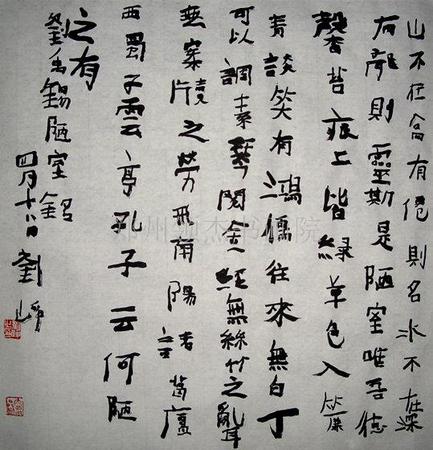 山不在高有僊則名水不在深
有龍則靈斯是陋室唯吾德
馨苔痕上皆綠草色入簾
青談笑有鴻儒往來無白丁
可以調素琴閱金經無絲竹之亂耳
無案牘之勞形南陽諸葛廬
西蜀子雲亭孔子云何陋
之有
劉禹錫陋室銘
四月十八日劉崢